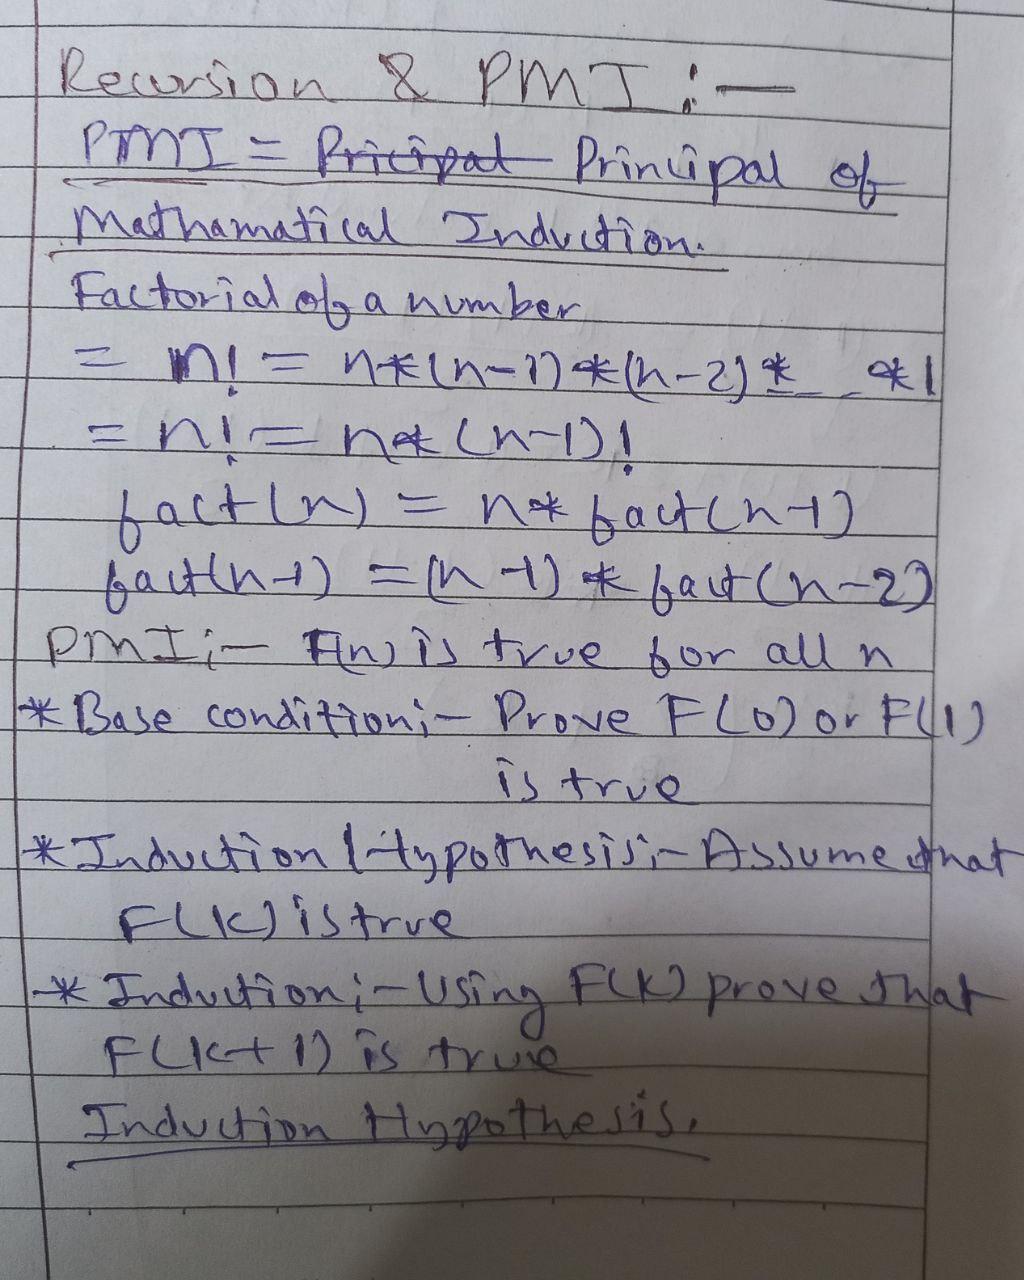 Recursion & PMI :-
PMI = Pricipal Principal of
Mathamatical Induction.
Factorial of a number
= n! = n*(n-1)*(n-2)*_ _ *1
= n! = n*(n-1)!
fact(n) = n* fact(n-1)
fact(n-1) = (n-1) * fact(n-2)
PMI :- F(n) is true for all n
* Base condition :- Prove F(0) or F(1)
is true
* Induction Hypothesis :- Assume that
F(K) is true
* Induction :- Using F(K) prove that
F(K+1) is true
Induction Hypothesis.